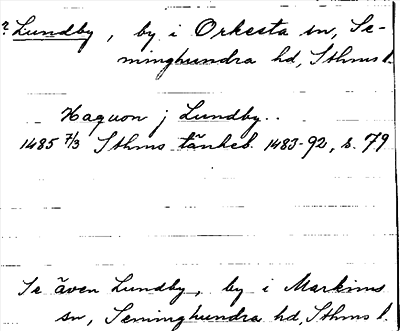 ? Lundby, by i Orkesta sn, Se-
minghundra hd, Sthms l.
Haquon j Lundby..
1485 7/3 Sthms tänkeb. 1483-92, s. 79
Se även Lundby, by i Markims
sn, Seminghundra hd, Sthms l.